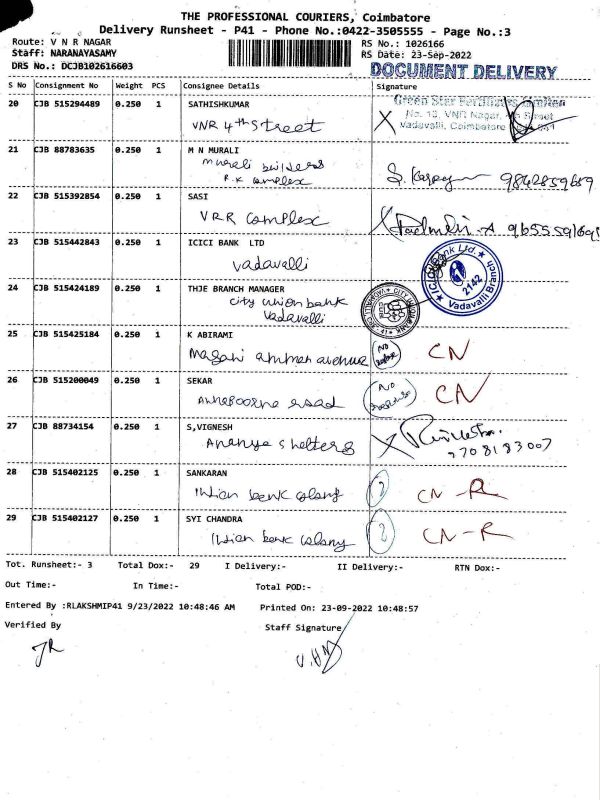 THE PROFESSIONAL COURIERS, Coimbatore
Delivery Runsheet - P41 - Phone No.:0422-3505555 - Page No.:3
Route: V N R NAGAR
RS No.: 1026166
Staff: NARANAYASAMY
RS Date: 23-Sep-2022
DRS No.: DCJB102616603
DOCUMENT DELIVERY
S No Consignment No Weight PCS Consignee Details Signature
20 CJB 515294489 0.250 1 SATHISHKUMAR
VNR 4th Street
Green Star Fertilizers Limited
No. 13, VNR Nagar, Street
Vadavalli, Coimbatore
21 CJB 88783635 0.250 1 M N MURALI
Murali builders
P.K complex
9842859689
22 CJB 515392854 0.250 1 SASI
VRR Complex
23 CJB 515442843 0.250 1 ICICI BANK LTD
Vadavalli
ICICI Bank Ltd.
2142
Vadavalli Branch
24 CJB 515424189 0.250 1 THJE BRANCH MANAGER
City union bank
Vadavalli
25 CJB 515425184 0.250 1 K ABIRAMI
amman avenue
No
CN
26 CJB 515200049 0.250 1 SEKAR
road
No
CN
27 CJB 88734154 0.250 1 S,VIGNESH
Ananya Shelters
9708183007
28 CJB 515402125 0.250 1 SANKARAN
Indian bank colony
CN-R
29 CJB 515402127 0.250 1 SYI CHANDRA
Indian bank colony
CN-R
Tot. Runsheet:- 3 Total Dox:- 29 I Delivery:- II Delivery:- RTN Dox:-
Out Time:- In Time:- Total POD:-
Entered By :RLAKSHMIP41 9/23/2022 10:48:46 AM Printed On: 23-09-2022 10:48:57
Verified By Staff Signature